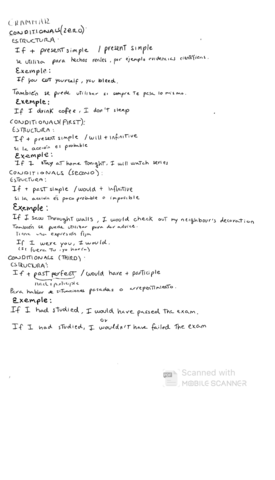 GRAMMAR
CONDITIONALS (ZERO)
ESTRUCTURA:
If + present simple / present simple
Se utiliza para hechos reales, por ejemplo evidencias científicas.
Exemple:
If you cut yourself, you bleed.
También se puede utilizar si siempre te pasa lo mismo.
Exemple:
If I drink cofee, I don't sleep
CONDITIONALS (FIRST):
ESTRUCTURA:
If + present simple / will + infinitive
Si la acción es probable
Exemple:
If I stay at home tonight, I will watch series
CONDITIONALS (SECOND):
ESTRUCTURA:
If + past simple / would + infinitive
Si la acción es poco probable o imposible
Exemple:
If I saw thought walls, I would check out my neighbour's decoration
También se puede utilizar para dar advice.
como una expresión fija
If I were you, I would.
(Si fuera tu yo haría)
CONDITIONALS (THIRD):
ESTRUCTURA:
If + past perfect / would have + participle
had + participle
Para hablar de situaciones pasadas o arrepentimiento.
Exemple:
If I had studied, I would have passed the exam.
or
If I had studied, I wouldn't have failed the exam
Scanned with
MOBILE SCANNER